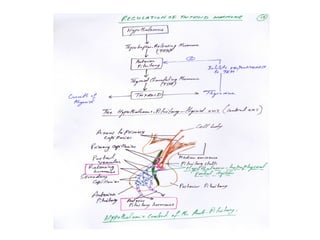 REGULATION OF THYROID HORMONE
Hypothalamus
Thyrotropin Releasing Hormone
(TRH)
Anterior
Pituitary
Thyroid Stimulating Hormone
(TSH)
to TRH
Thyroid
Thyroxine
The Hypothalamic-Pituitary-Thyroid axis (Control axis)
Cell body
Axons to Primary
Capillaries
Primary capillaries
Portal
Median eminence
Releasing
hormones
Pituitary stalk
Hypothalamic-hypophyseal
Portal System
Secondary
Capillaries
Posterior Pituitary
Anterior
Pituitary
Anterior
Pituitary hormones
Hypothalamic Control of the Ant. Pituitary.